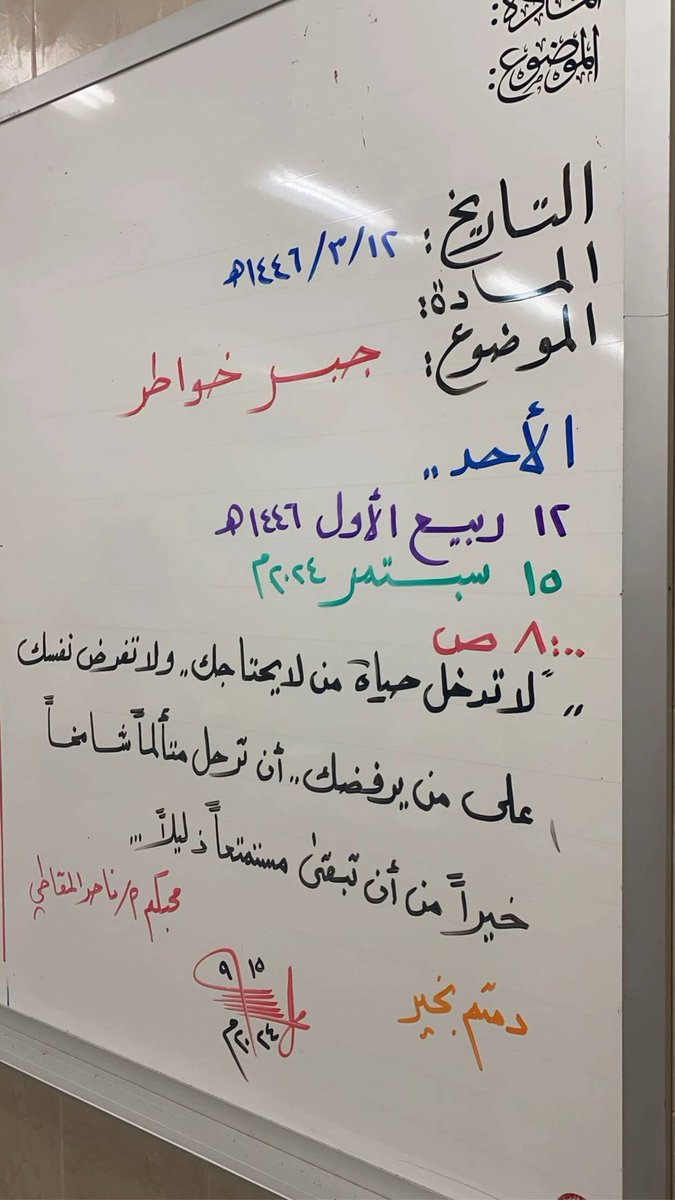 المادة:
الموضوع:
التاريخ: ١٤٤٦/٣/١٢هـ
المادة:
الموضوع: جبر خواطر
الأحد ,,
١٢ ربيع الأول ١٤٤٦هـ
١٥ سبتمبر ٢٠٢٤م
٨:٠٠ ص
,, "لا تدخل حياة من لا يحتاجك,, ولا تفرض نفسك
على من يرفضك,, أن ترحل متألماً شامخاً
خيراً من أن تبقىٰ مستمتعاً ذليلاً...
محبكم م/ناصر المقاطي
دمتم بخير
١٥ ٩
٢٠٢٤م